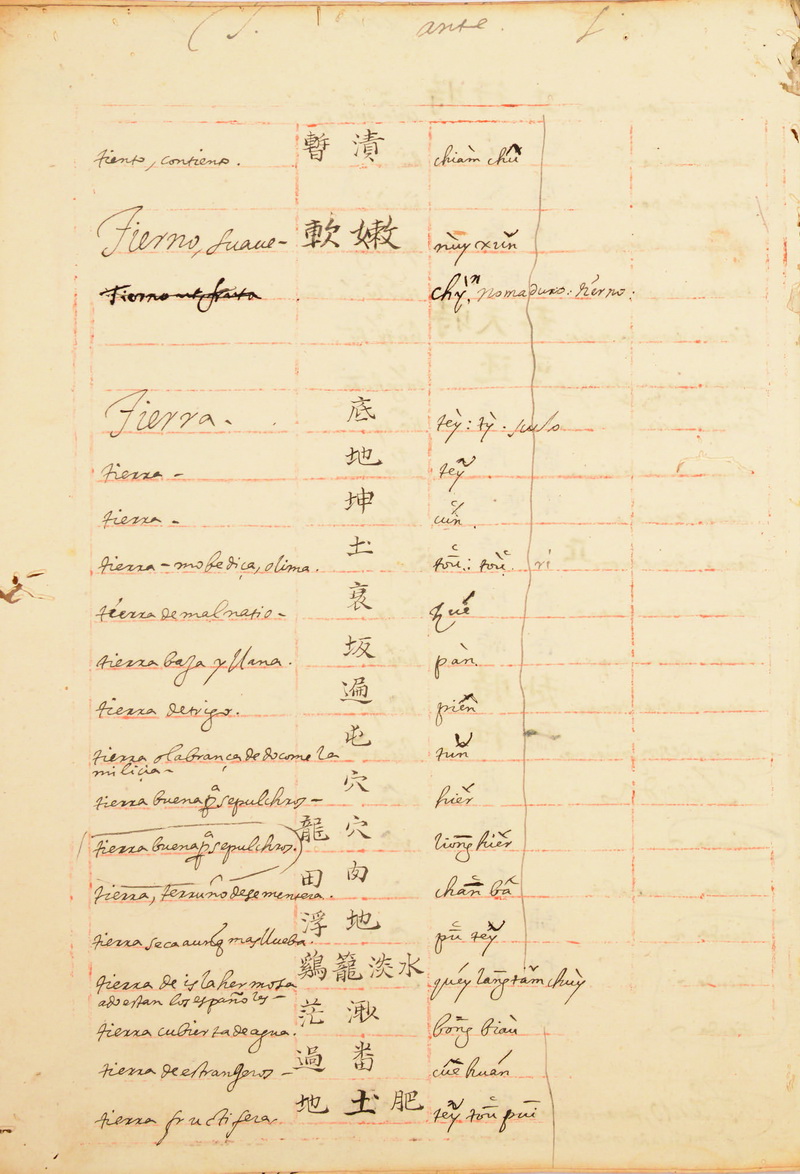 T. ante I.
tiento, contiento. 暫 漬 chiàm chũ
Tierno, suave - 軟 嫩 nùy xún
Tierno ut fruta chỳⁿ, no maduro: tierno:
Tierra - 底 tèy: tỳ. suelo
tierra - 地 teỹ
tierra - 坤 cun.
tierra - mobediça, o lima. 土 toū: toù. ri
tierra de mal natio - hué
tierra baja y llana. 坂 pàn.
tierra de trigo. 遍 pièn
tierra o labrança de do come la 屯 tun
milicia -
tierra buena pᵃ sepulchros - 穴 hiěr
tierra buena pᵃ sepulchros. 龍 穴 liong hiěr
tierra, terruño de sementera. 田 chān bâ
tierra seca aunq̃ mas llueba. 浮 地 pū tey
tierra de isla hermosa 鷄 籠 淡 水 quéy lāng tām chùy
ado estan los españoles -
tierra cubierta de agua. 茫 bōng biàu
tierra de estrangeros - 過 番 cuè huán
tierra fructifera 地 土 肥 teỹ toū puî